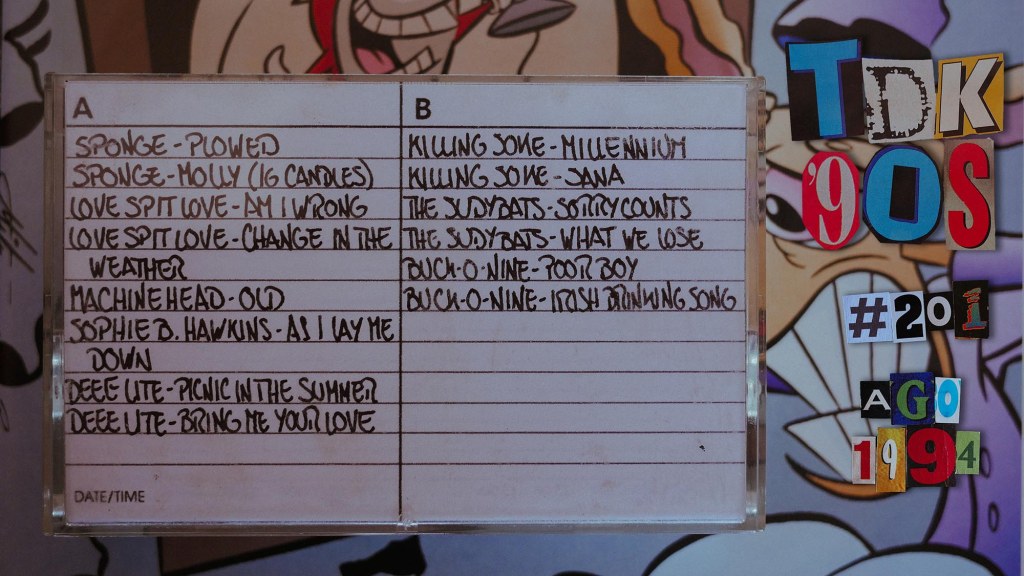 A
SPONGE - PLOWED
SPONGE - MOLLY (16 CANDLES)
LOVE SPIT LOVE - AM I WRONG
LOVE SPIT LOVE - CHANGE IN THE
WEATHER
MACHINE HEAD - OLD
SOPHIE B. HAWKINS - AS I LAY ME
DOWN
DEEE LITE - PICNIC IN THE SUMMER
DEEE LITE - BRING ME YOUR LOVE
DATE/TIME
B
KILLING JOKE - MILLENNIUM
KILLING JOKE - JANA
THE JUDYBATS - SORRY COUNTS
THE JUDYBATS - WHAT WE LOSE
BUCK-O-NINE - POOR BOY
BUCK-O-NINE - IRISH DRINKING SONG
TDK
'90S
#201
AGO
1994